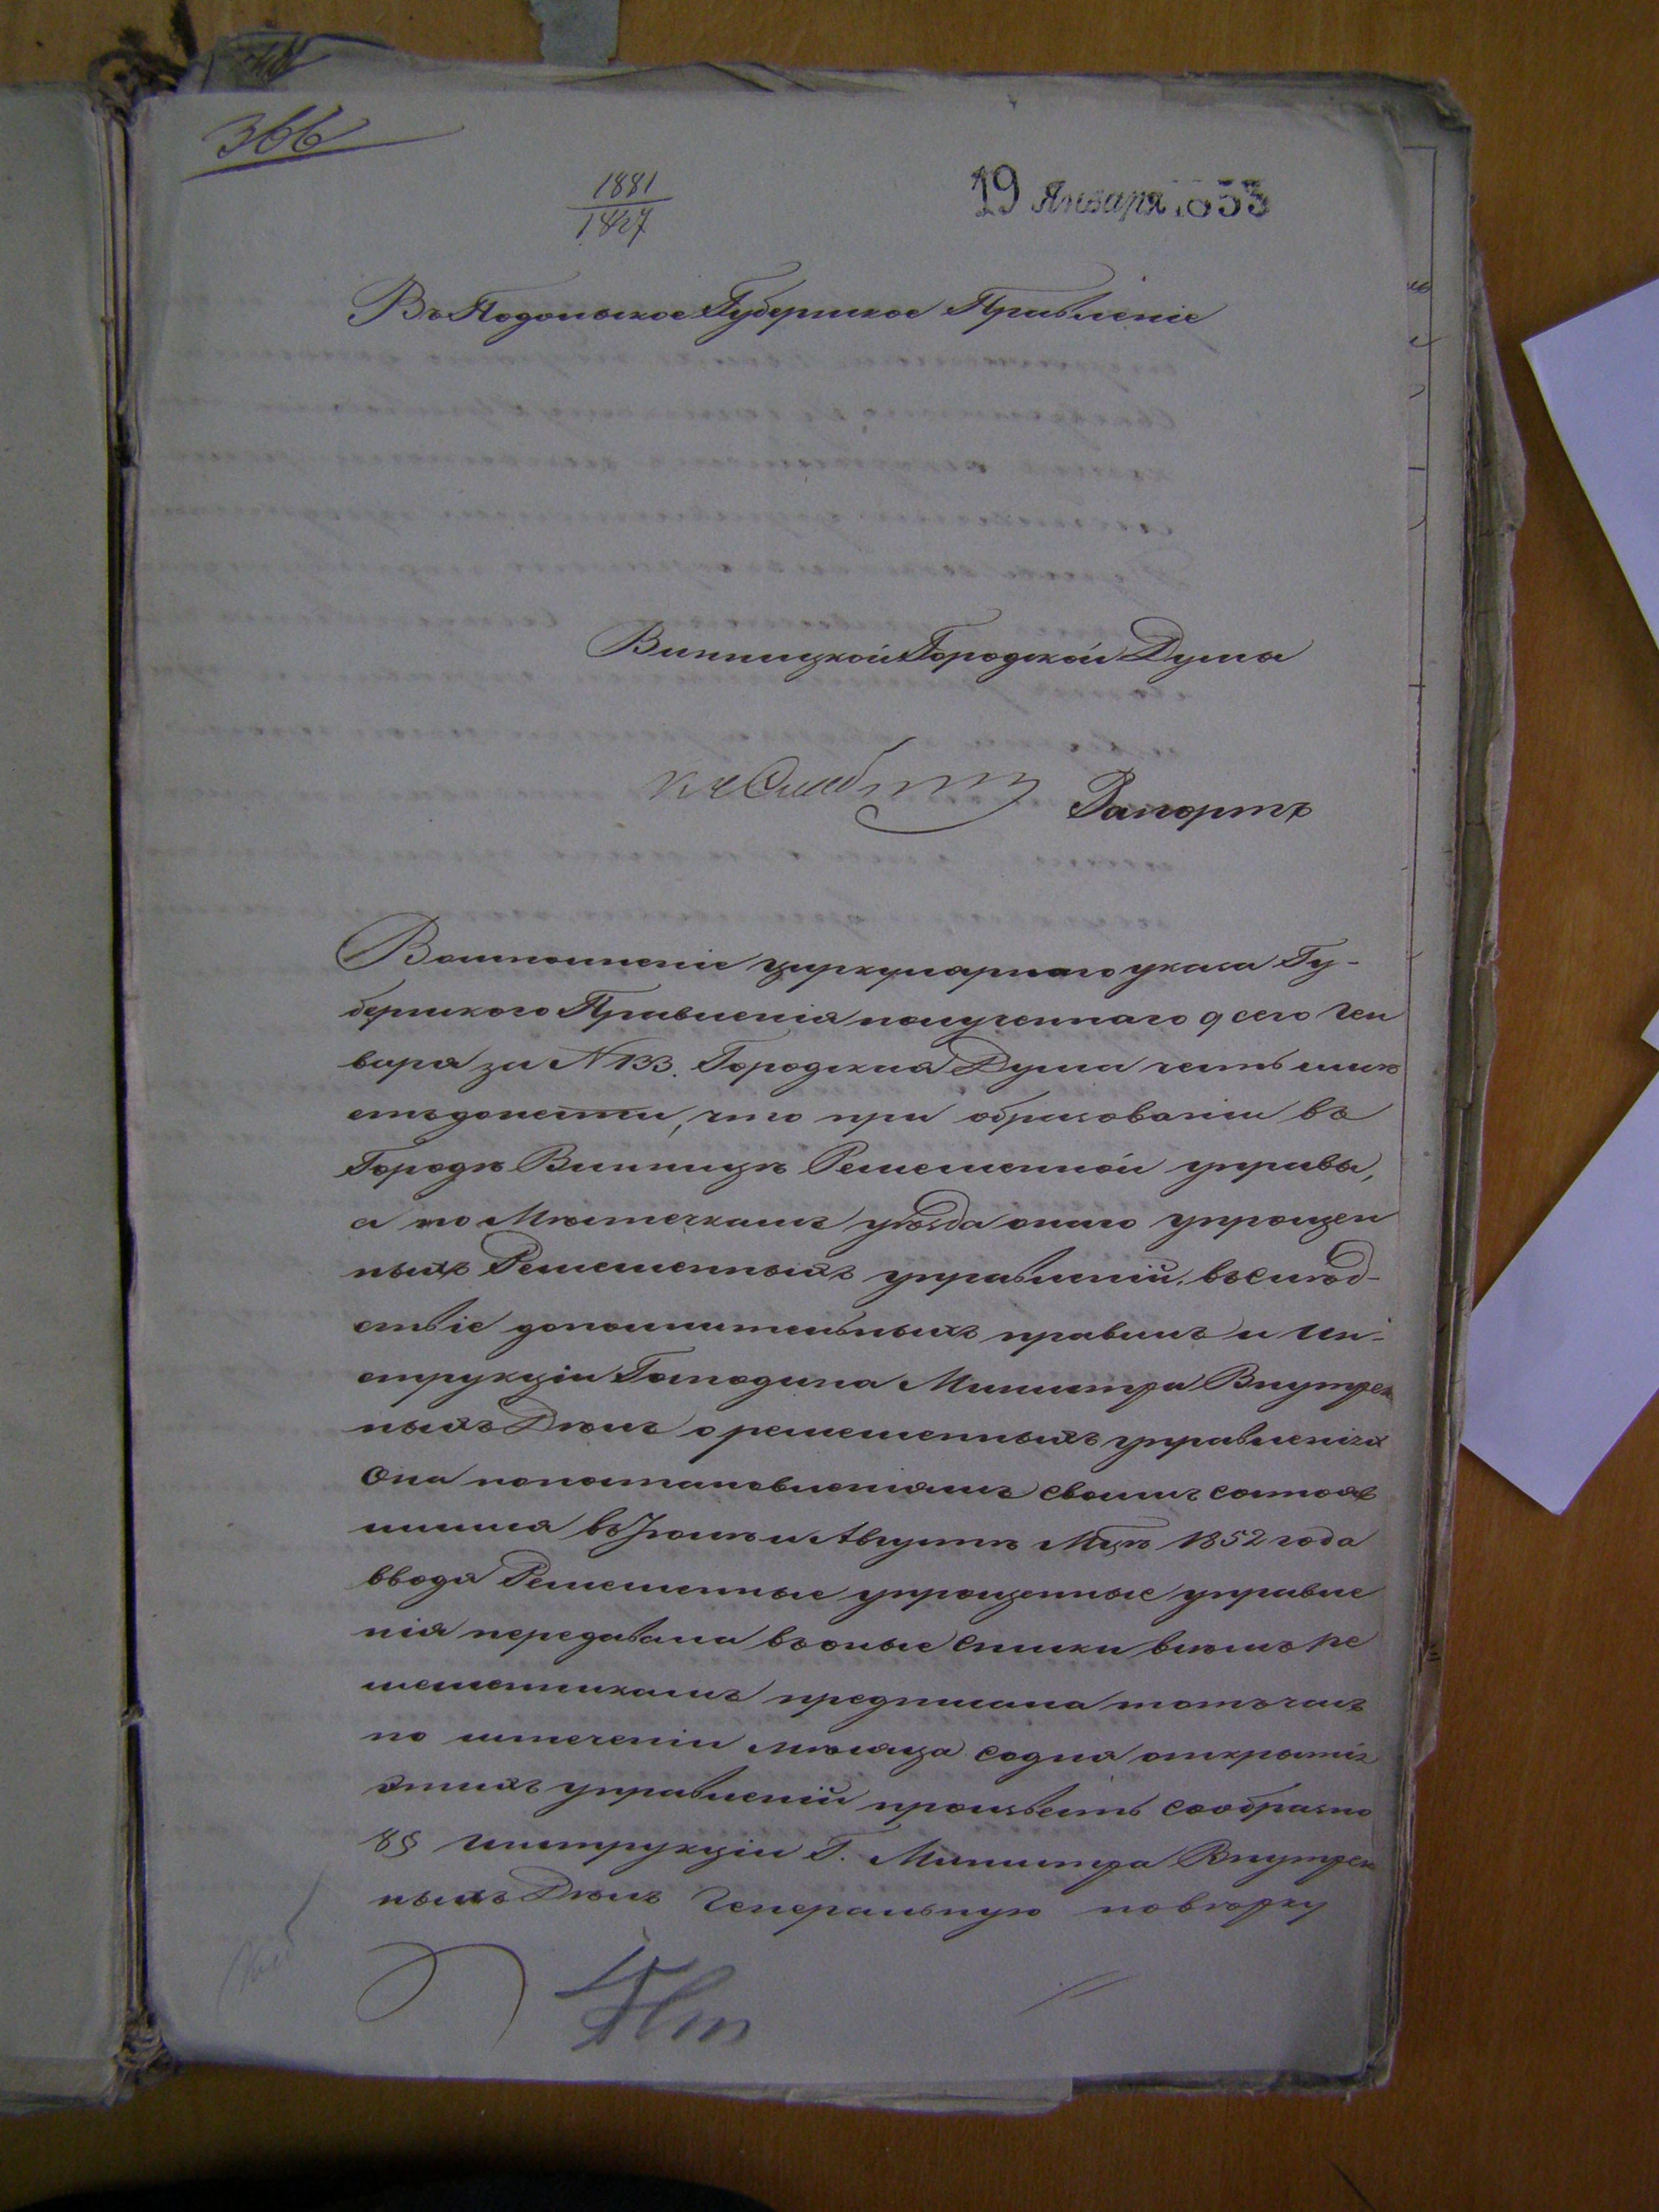 366
1881
1827
19 Января 1853
Въ Подольское Губернское Правленіе
Винницкой Городской Думы
Рапортъ
Во исполненіе циркулярнаго указа Гу-
бернскаго Правленія полученнаго 9 сего Ген
варя за N 133. Городская Дума честь имѣ
етъ донести, что при образованіи въ
Городѣ Винницѣ Ремесленной управы,
а по Мѣстечкамъ уѣзда онаго упрощен
ныхъ Ремесленныхъ управленій, въслѣд-
ствіе дополнительныхъ правилъ и Ин-
струкціи Господина Министра Внутрен
ныхъ Дѣлъ о ремесленныхъ управленіях
Она попостановленіямъ своимъ состояв
шимся въ Іюлѣ и Августѣ Мцѣ 1852 года
вводя Ремесленные упрощенные управле
нія передавала въ оные списки всѣмъ ре
месленникамъ предписала тотъ часъ
по истеченіи мѣсяца содня открытія
этихъ управленій произвесть сообразно
8 § инструкціи Г. Министра Внутрен
ныхъ Дѣлъ Генеральную повѣрку